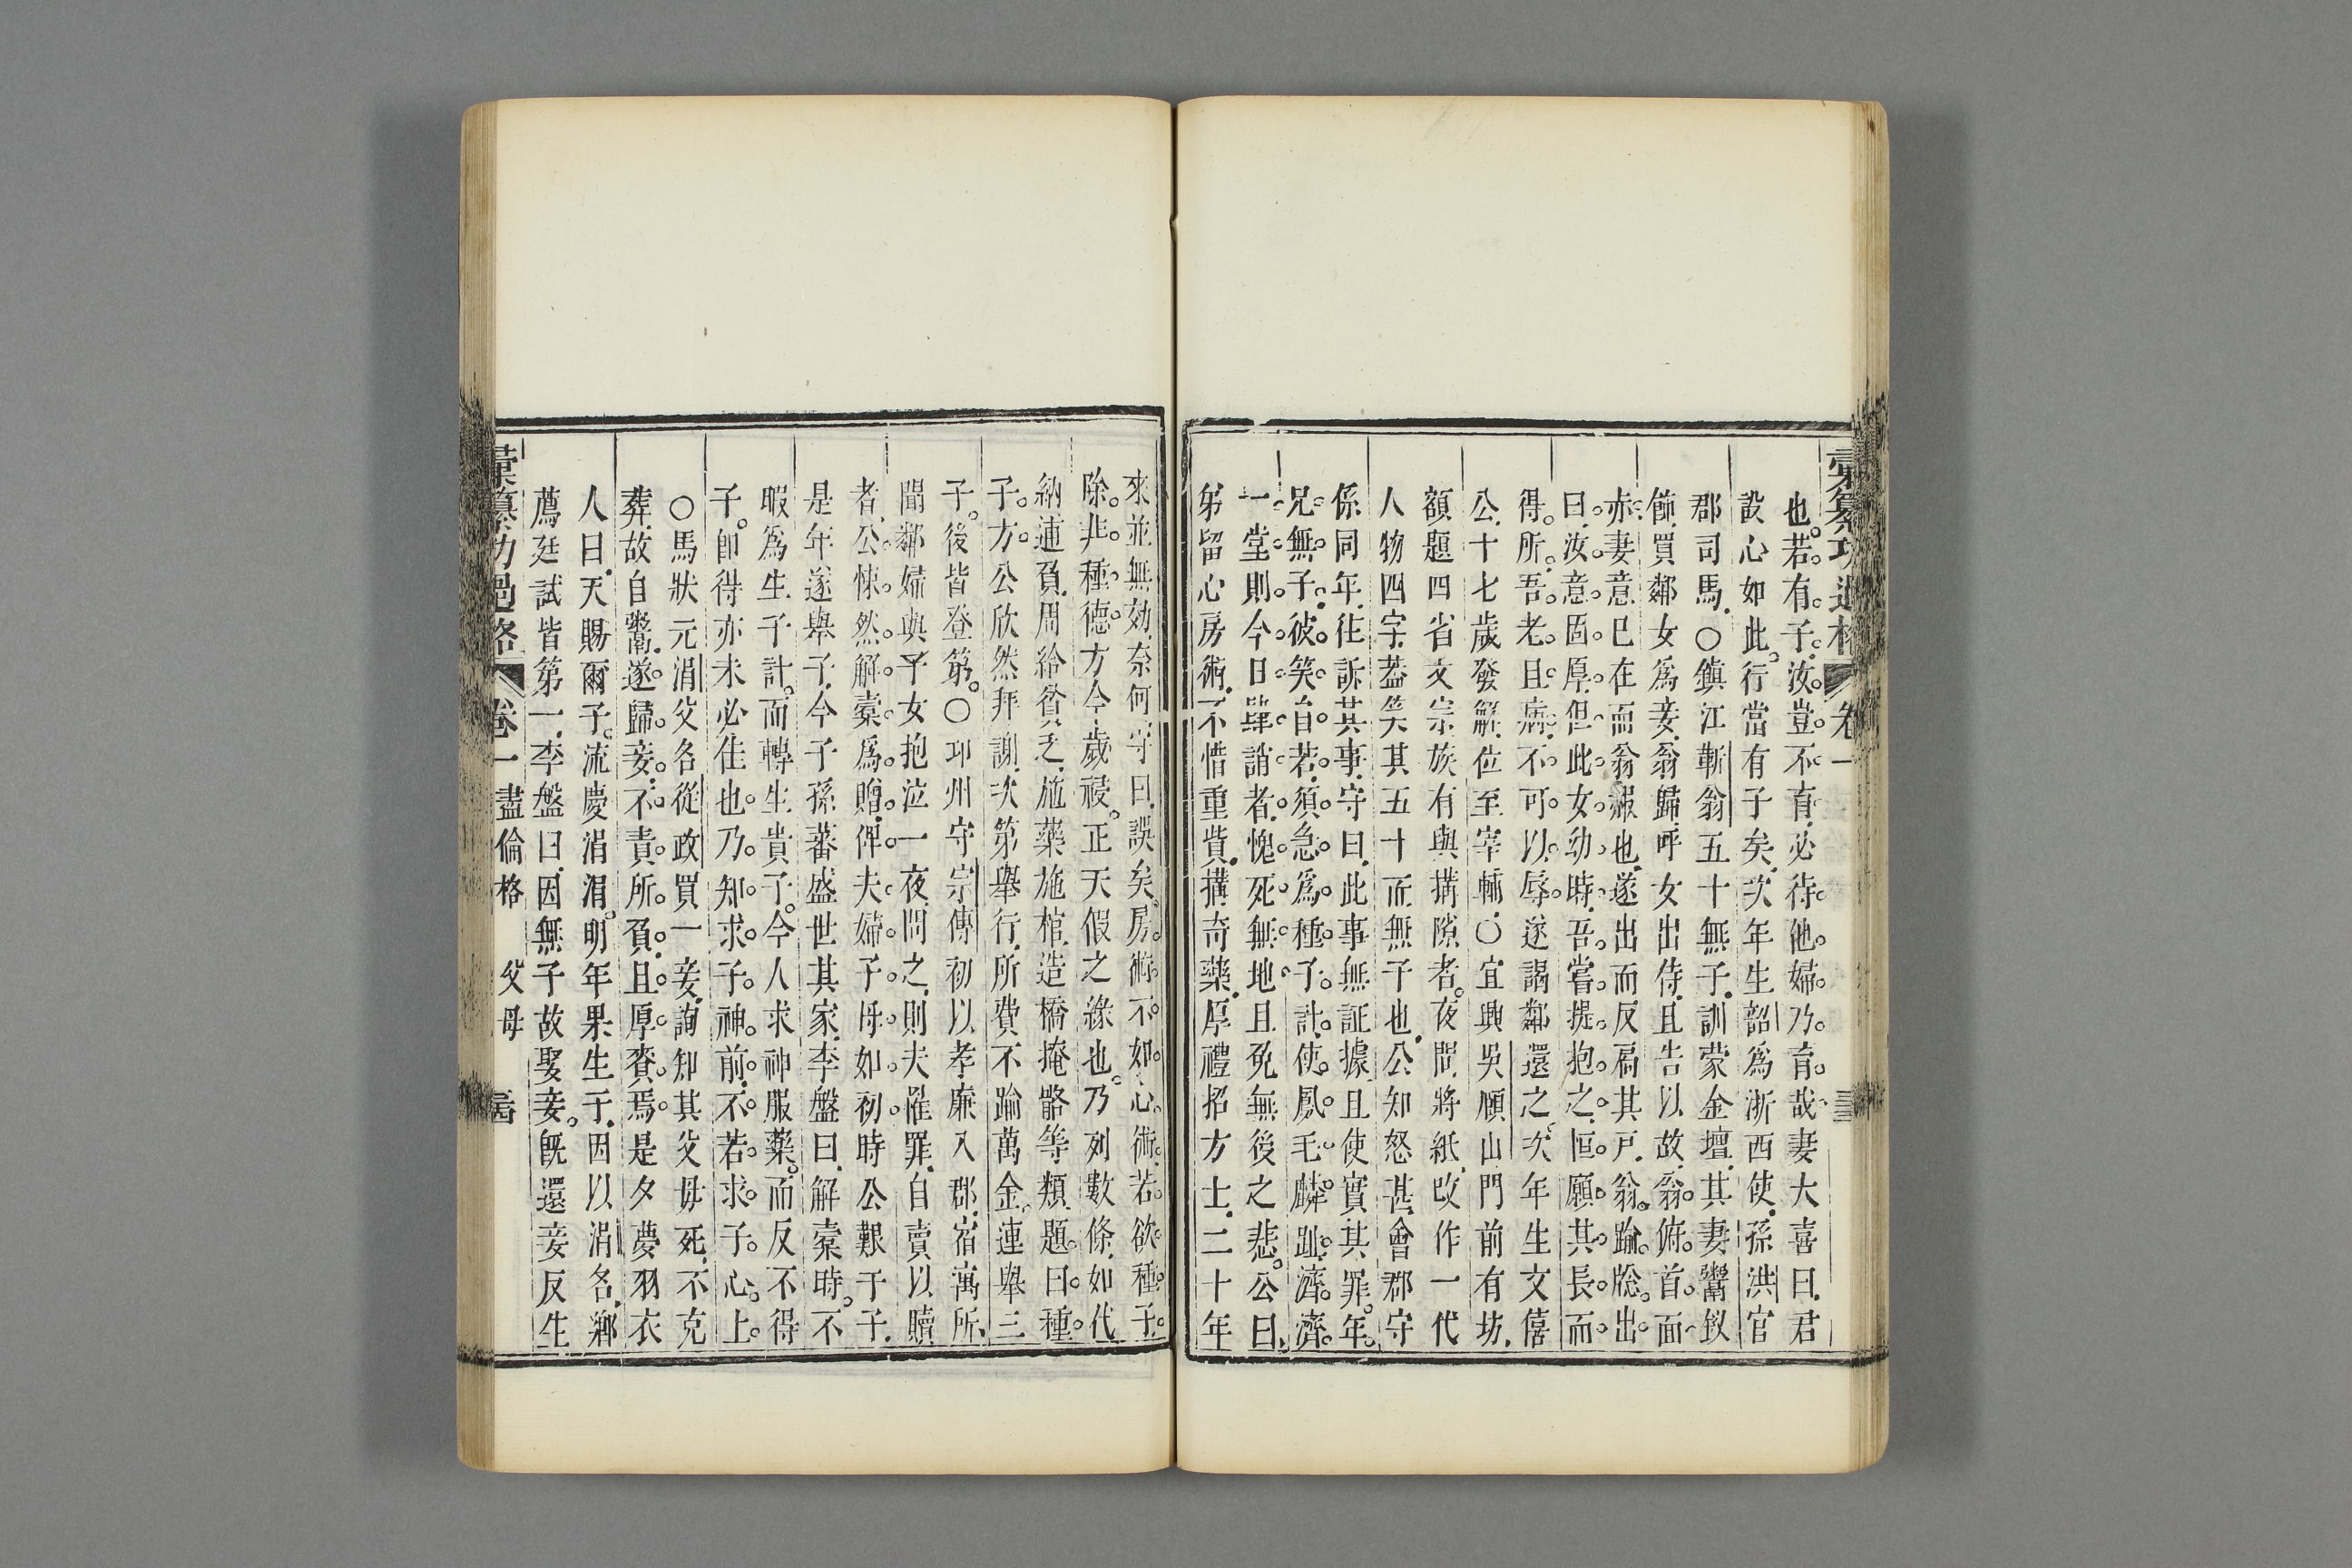 彙纂功過格 卷一
也若有子汝豈不育必待他婦乃育哉妻大喜曰君
設心如此行當有子矣次年生韶爲浙西使孫洪官
郡司馬○鎮江靳翁五十無子訓蒙金壇其妻鬻釵
飾買鄰女爲妾翁歸呼女出侍且告以故翁俯首面
赤妻意已在而翁赧也遂出而反扃其戸翁踰牕出
曰汝意固厚但此女幼時吾嘗提抱之恒願其長而
得所吾老且病不可以辱遂謁鄰還之次年生文僖
公十七歲發解位至宰輔○宜興吳頤山門前有坊
額題四省文宗族有與搆隙者夜間將紙改作一代
人物四字葢笑其五十而無子也公知怒甚會郡守
係同年往訴其事守曰此事無証據且使實其罪年
兄無子彼笑自若須急爲種子計使鳳毛麟趾濟濟
一堂則今日肆誚者愧死無地且免無後之悲公曰
弟留心房術不惜重貲搆奇藥厚禮招方士二十年
來並無効奈何守曰誤矣房術不如心術若欲種子
除非種德方今歲祲正天假之緣也乃列數條如代
納逋負周給貧乏施藥施棺造橋掩骼等類題曰種
子方公欣然拜謝次第舉行所費不踰萬金連舉三
子後皆登第○邛州守宗傳初以孝廉入郡宿寓所
聞鄰婦與子女抱泣一夜問之則夫罹罪自賣以贖
者公悚然解橐爲贈俾夫婦子母如初時公艱于子
是年遂舉子今子孫蕃盛世其家李盤曰解橐時不
暇爲生子計而轉生貴子今人求神服藥而反不得
子卽得亦未必佳也乃知求子神前不若求子心上
○馬狀元涓父名從政買一妾詢知其父母死不克
葬故自鬻遂歸妾不責所負且厚賚焉是夕夢羽衣
人曰天賜爾子流慶涓涓明年果生子因以涓名鄉
薦廷試皆第一李盤曰因無子故娶妾旣還妾反生
彙纂功過格 卷一 盡倫格 父母